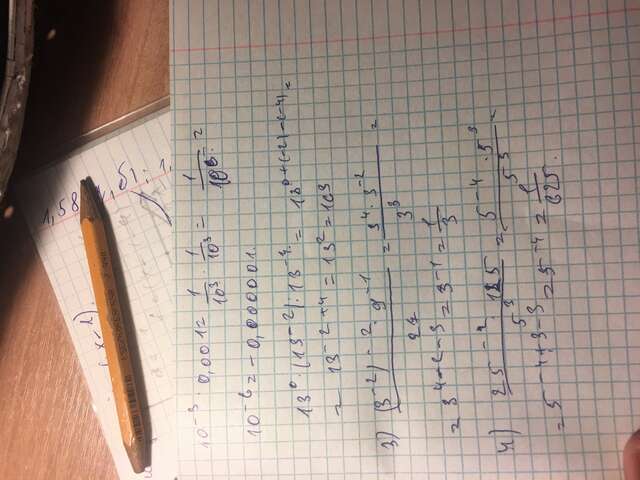 (x-1).
1,58
10⁻³ · 0,001 = 1/10³ · 1/10³ = 1/10⁶ =
10⁻⁶ = - 0,000001.
13⁰ · (13⁻²) · 13⁻⁴ = 13^0+(-2)-(-4) =
= 13⁻²⁺⁴ = 13² = 163
3) (3⁻²)⁻² · 9⁻¹ / 27 = 3⁴ · 3⁻² / 3³ =
= 3⁴⁻²⁻³ = 3⁻¹ = 1/3
4) 25⁻² · 125 / 5³ = 5⁻⁴ · 5³ / 5³ =
= 5⁻⁴⁺³⁻³ = 5⁻⁴ = 1/625.